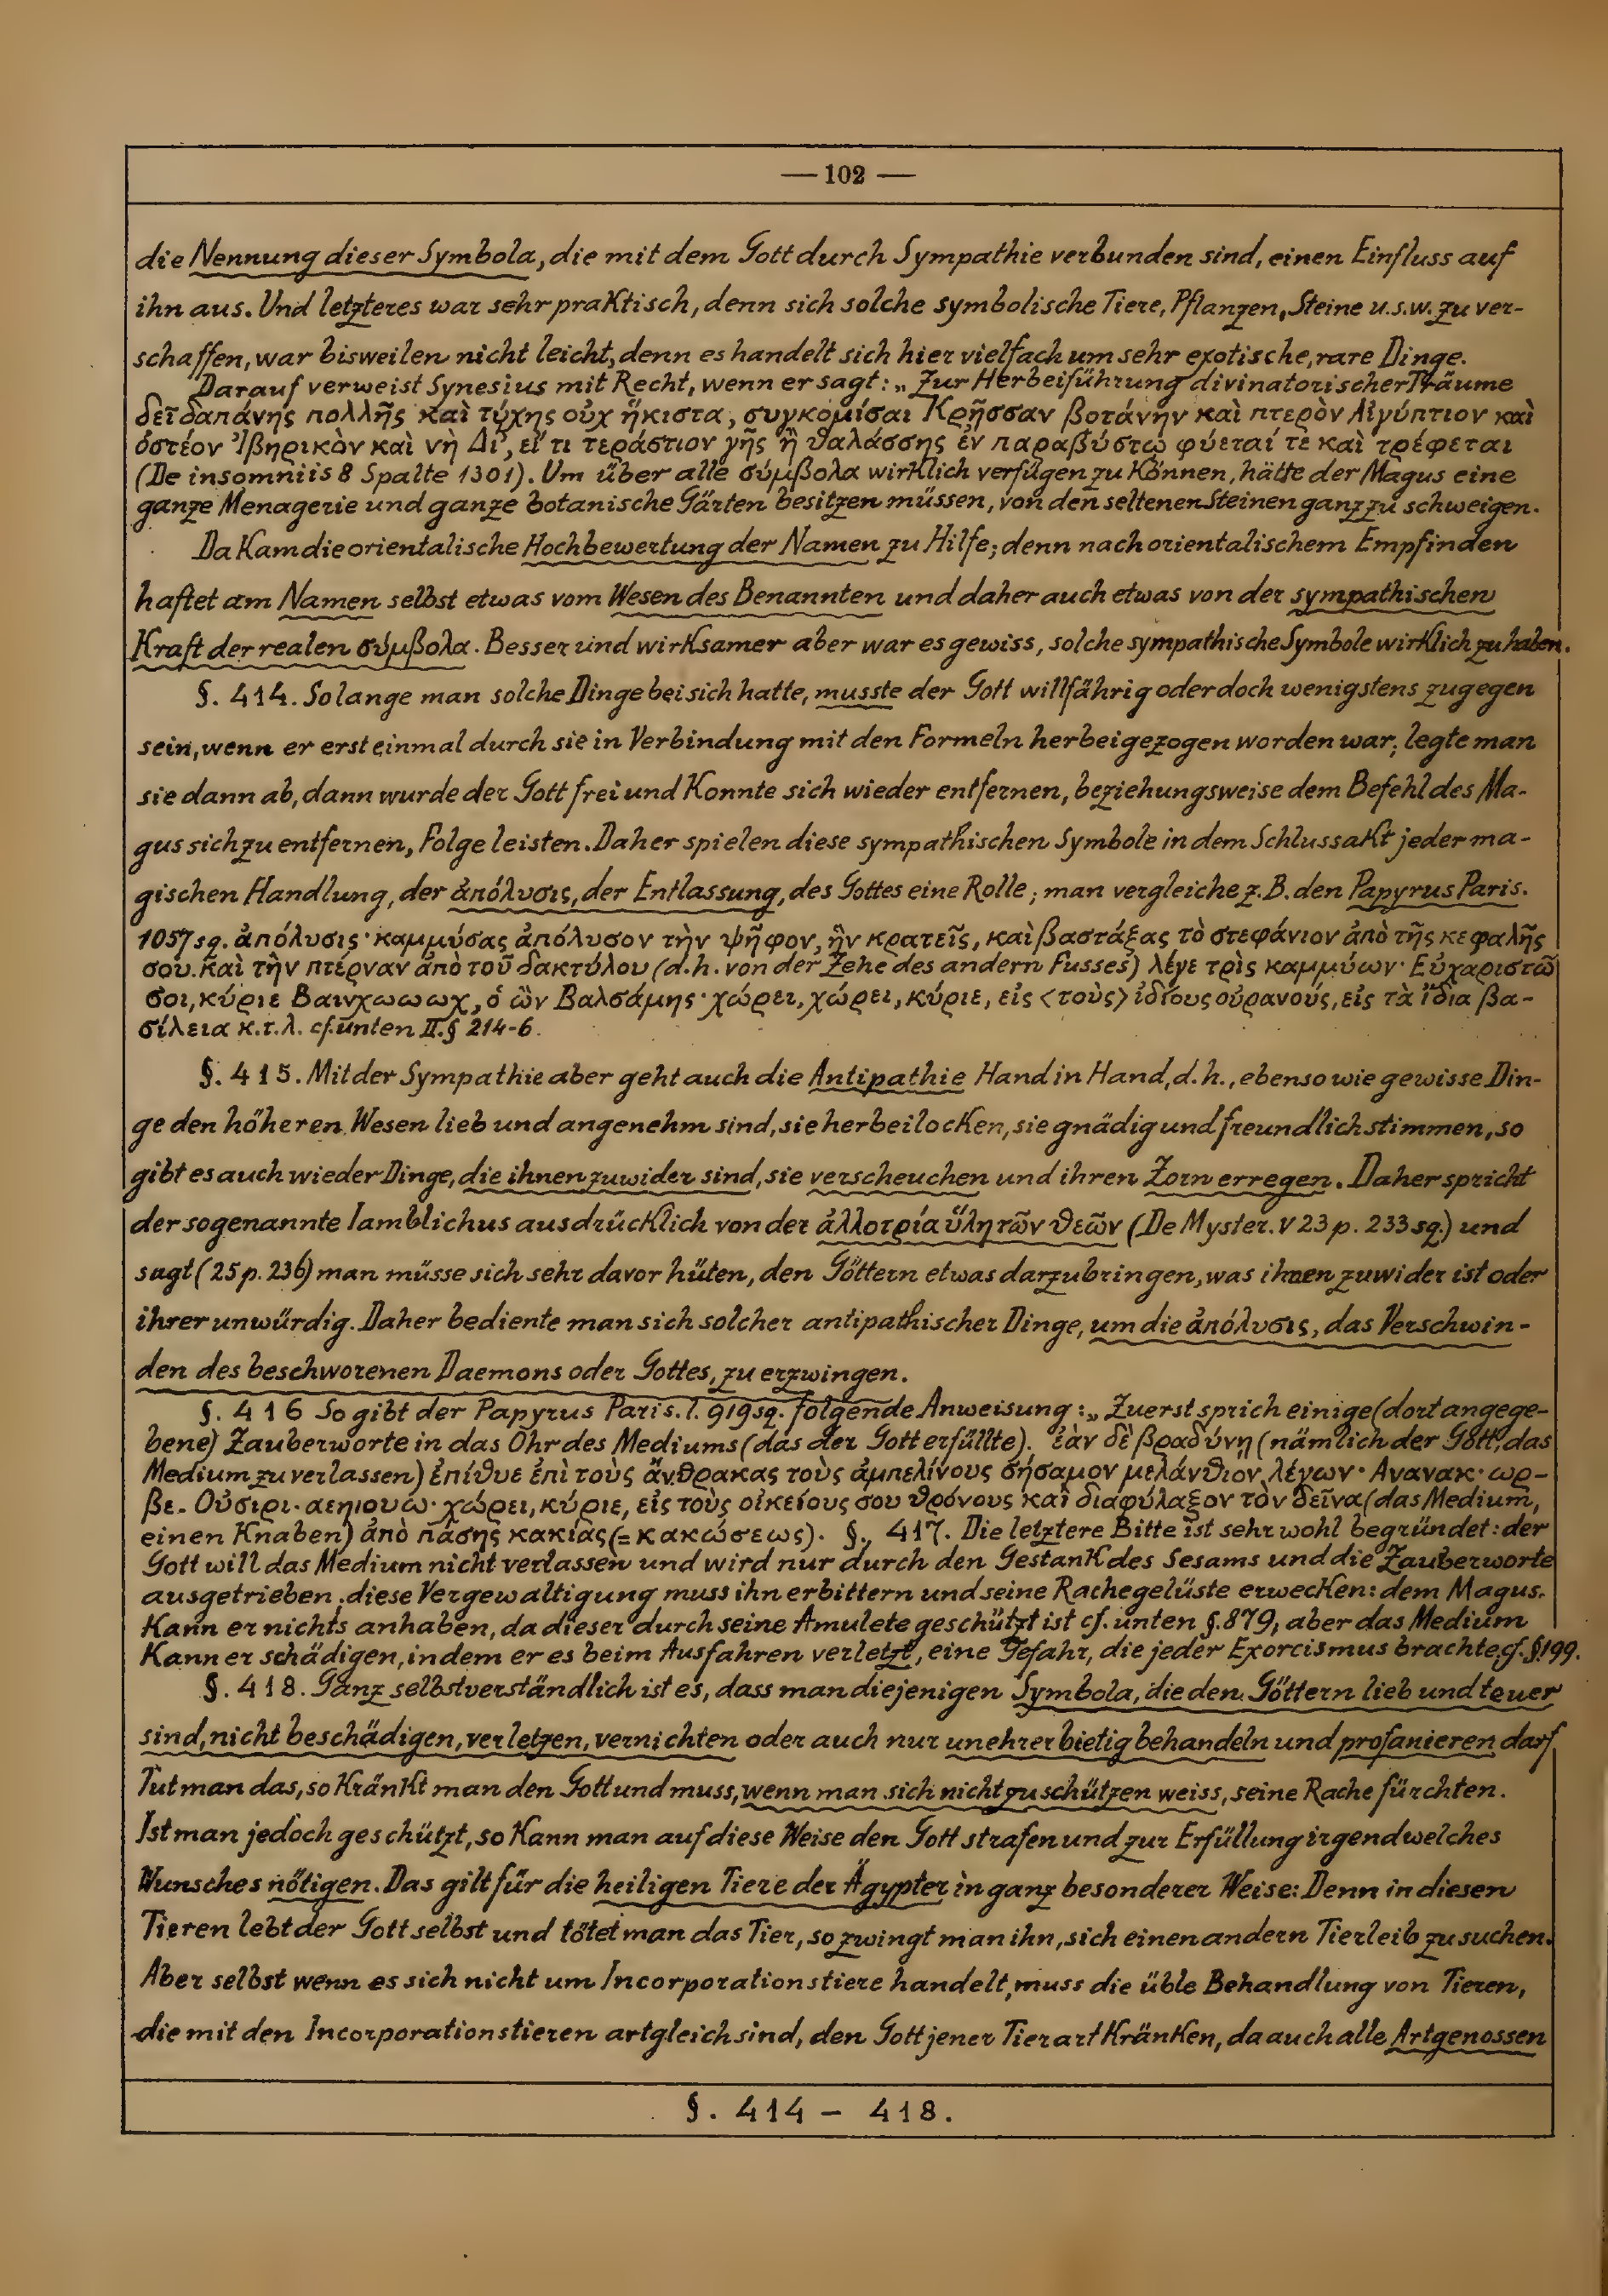 — 102 —
die Nennung dieser Symbola, die mit dem Gott durch Sympathie verbunden sind, einen Einfluss auf
ihn aus. Und letzteres war sehr praktisch, denn sich solche symbolische Tiere, Pflanzen, Steine u.s.w. zu ver-
schaffen, war bisweilen nicht leicht, denn es handelt sich hier vielfach um sehr exotische, rare Dinge.
Darauf verweist Synesius mit Recht, wenn er sagt: „Zur Herbeiführung divinatorischer Träume
δεῖ δαπάνης πολλῆς καὶ τύχης οὐχ ἥκιστα, συγκομίσαι Κρῆσσαν βοτάνην καὶ πτερὸν Αἰγύπτιον καὶ
ὀστέον Ἰβηρικὸν καὶ νὴ Δί', εἴ τι τεράστιον γῆς ἢ θαλάσσης ἐν παραβύστῳ φύεταί τε καὶ τρέφεται
(De insomniis 8 Spalte 1301). Um über alle σύμβολα wirklich verfügen zu können, hätte der Magus eine
ganze Menagerie und ganze botanische Gärten besitzen müssen, von den seltenen Steinen ganz zu schweigen.
Da kam die orientalische Hochbewertung der Namen zu Hilfe; denn nach orientalischem Empfinden
haftet am Namen selbst etwas vom Wesen des Benannten und daher auch etwas von der sympathischen
Kraft der realen σύμβολα. Besser und wirksamer aber war es gewiss, solche sympathische Symbole wirklich zu haben.
§. 414. Solange man solche Dinge bei sich hatte, musste der Gott willfährig oder doch wenigstens zugegen
sein, wenn er erst einmal durch sie in Verbindung mit den Formeln herbeigezogen worden war; legte man
sie dann ab, dann wurde der Gott frei und konnte sich wieder entfernen, beziehungsweise dem Befehl des Ma-
gus sich zu entfernen, Folge leisten. Daher spielen diese sympathischen Symbole in dem Schlussakt jeder ma-
gischen Handlung, der ἀπόλυσις, der Entlassung, des Gottes eine Rolle; man vergleiche z.B. den Papyrus Paris.
1057 sq. ἀπόλυσις· καμμύσας ἀπόλυσον τὴν ψῆφον, ἣν κρατεῖς, καὶ βαστάξας τὸ στεφάνιον ἀπὸ τῆς κεφαλῆς
σου καὶ τὴν πτέρναν ἀπὸ τοῦ δακτύλου (d.h. von der Zehe des andern Fusses) λέγε τρὶς καμμύων· Εὐχαριστῶ
σοι, κύριε Βαινχωωωχ, ὁ ὢν Βαλσάμης· χώρει, χώρει, κύριε, εἰς <τοὺς> ἰδίους οὐρανούς, εἰς τὰ ἴδια βα-
σίλεια κ.τ.λ. cf. unten II. § 214-6.
§. 415. Mit der Sympathie aber geht auch die Antipathie Hand in Hand, d.h., ebenso wie gewisse Din-
ge den höheren Wesen lieb und angenehm sind, sie herbeilocken, sie gnädig und freundlich stimmen, so
gibt es auch wieder Dinge, die ihnen zuwider sind, sie verscheuchen und ihren Zorn erregen. Daher spricht
der sogenannte Iamblichus ausdrücklich von der ἀλλοτρία ὕλη τῶν θεῶν (De Myster. V 23 p. 233 sq.) und
sagt (25 p. 236) man müsse sich sehr davor hüten, den Göttern etwas darzubringen, was ihnen zuwider ist oder
ihrer unwürdig. Daher bediente man sich solcher antipathischer Dinge, um die ἀπόλυσις, das Verschwin-
den des beschworenen Daemons oder Gottes, zu erzwingen.
§. 416 So gibt der Papyrus Paris. l. 919 sq. folgende Anweisung: „Zuerst sprich einige (dort angege-
bene) Zauberworte in das Ohr des Mediums (das der Gott erfüllte). ἐὰν δὲ βραδύνῃ (nämlich der Gott, das
Medium zu verlassen) ἐπίθυε ἐπὶ τοὺς ἄνθρακας τοὺς ἀμπελίνους σήσαμον μελάνθιον λέγων· Ανανακ· ωρ-
βε· Οὐσιρι· αεηιουω· χώρει, κύριε, εἰς τοὺς οἰκείους σου θρόνους καὶ διαφύλαξον τὸν δεῖνα (das Medium,
einen Knaben) ἀπὸ πάσης κακίας (= κακώσεως). §. 417. Die letztere Bitte ist sehr wohl begründet: der
Gott will das Medium nicht verlassen und wird nur durch den Gestank des Sesams und die Zauberworte
ausgetrieben; diese Vergewaltigung muss ihn erbittern und seine Rachegelüste erwecken: dem Magus
kann er nichts anhaben, da dieser durch seine Amulete geschützt ist cf. unten §. 879, aber das Medium
kann er schädigen, indem er es beim Ausfahren verletzt, eine Gefahr, die jeder Exorcismus brachte, cf. §. 199.
§. 418. Ganz selbstverständlich ist es, dass man diejenigen Symbola, die den Göttern lieb und teuer
sind, nicht beschädigen, verletzen, vernichten oder auch nur unehrerbietig behandeln und profanieren darf.
Tut man das, so kränkt man den Gott und muss, wenn man sich nicht zu schützen weiss, seine Rache fürchten.
Ist man jedoch geschützt, so kann man auf diese Weise den Gott strafen und zur Erfüllung irgendwelches
Wunsches nötigen. Das gilt für die heiligen Tiere der Ägypter in ganz besonderer Weise: Denn in diesen
Tieren lebt der Gott selbst und tötet man das Tier, so zwingt man ihn, sich einen andern Tierleib zu suchen.
Aber selbst wenn es sich nicht um Incorporationstiere handelt, muss die üble Behandlung von Tieren,
die mit den Incorporationstieren artgleich sind, den Gott jener Tierart kränken, da auch alle Artgenossen
§. 414 – 418.